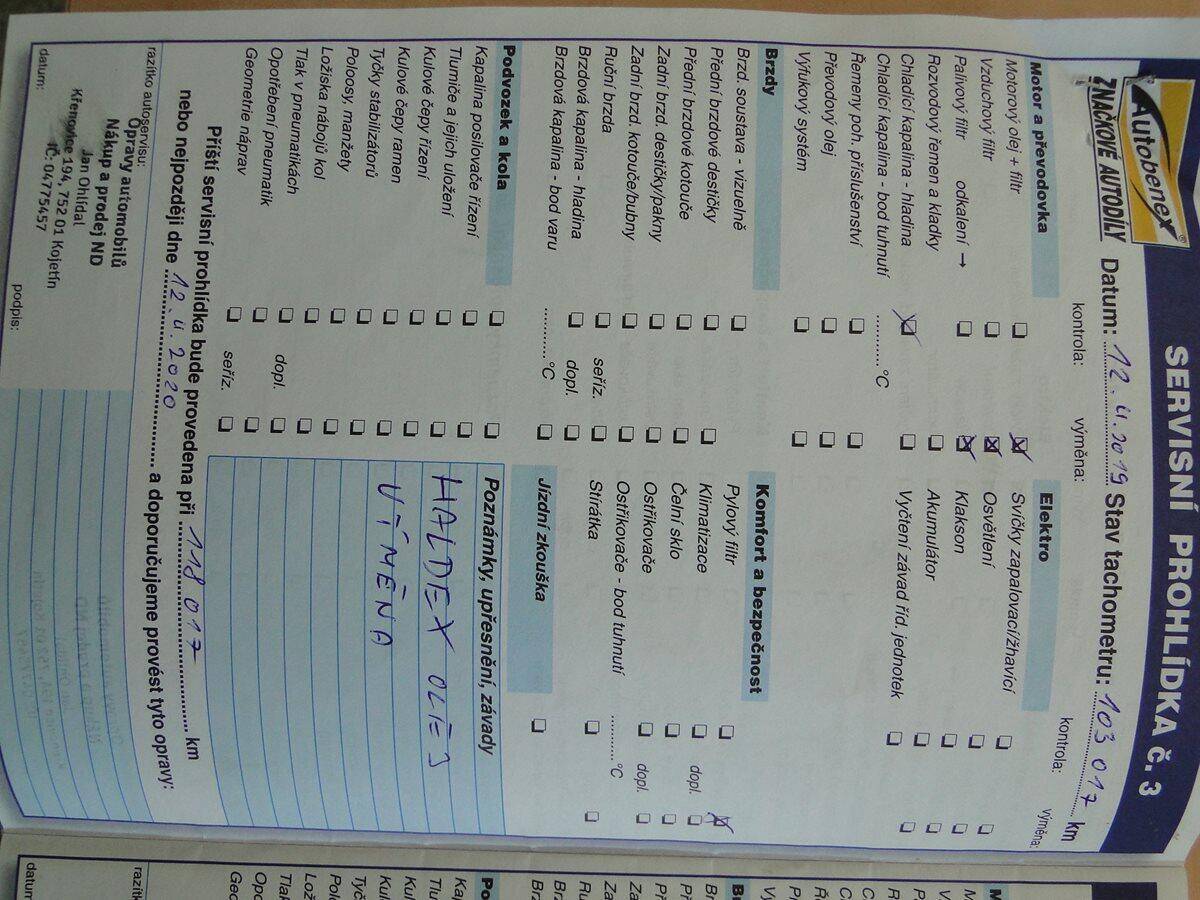 SERVISNÍ PROHLÍDKA č. 3
Autobenex®
ZNAČKOVÉ AUTODÍLY
Datum: 12.4.2019 Stav tachometru: 103 017 km
kontrola: výměna:
Motor a převodovka
Motorový olej + filtr
Vzduchový filtr
Palivový filtr odkalení →
Rozvodový řemen a kladky
Chladící kapalina - hladina
Chladící kapalina - bod tuhnutí ............°C
Řemeny poh. příslušenství
Převodový olej
Výfukový systém
Brzdy
Brzd. soustava - vizuelně
Přední brzdové destičky
Přední brzdové kotouče
Zadní brzd. destičky/pakny
Zadní brzd. kotouče/bubny
Ruční brzda seříz.
Brzdová kapalina - hladina dopl.
Brzdová kapalina - bod varu ............°C
Podvozek a kola
Kapalina posilovače řízení
Tlumiče a jejich uložení
Kulové čepy řízení
Kulové čepy ramen
Tyčky stabilizátorů
Poloosy, manžety
Ložiska nábojů kol
Tlak v pneumatikách dopl.
Opotřebení pneumatik
Geometrie náprav seříz.
kontrola: výměna:
Elektro
Svíčky zapalovací/žhavící
Osvětlení
Klakson
Akumulátor
Vyčtení závad říd. jednotek
Komfort a bezpečnost
Pylový filtr
Klimatizace dopl.
Čelní sklo
Ostřikovače dopl.
Ostřikovače - bod tuhnutí ............°C
Stírátka
Jízdní zkouška
Poznámky, upřesnění, závady
HALDEX OLEJ
VÝMĚNA
Příští servisní prohlídka bude provedena při 118 017 km
nebo nejpozději dne 12.4.2020 a doporučujeme provést tyto opravy:
razítko autoservisu:
Opravy automobilů
Nákup a prodej ND
Jan Ohlídal
Křenovice 194, 752 01 Kojetín
IČ: 04775457
datum: podpis: